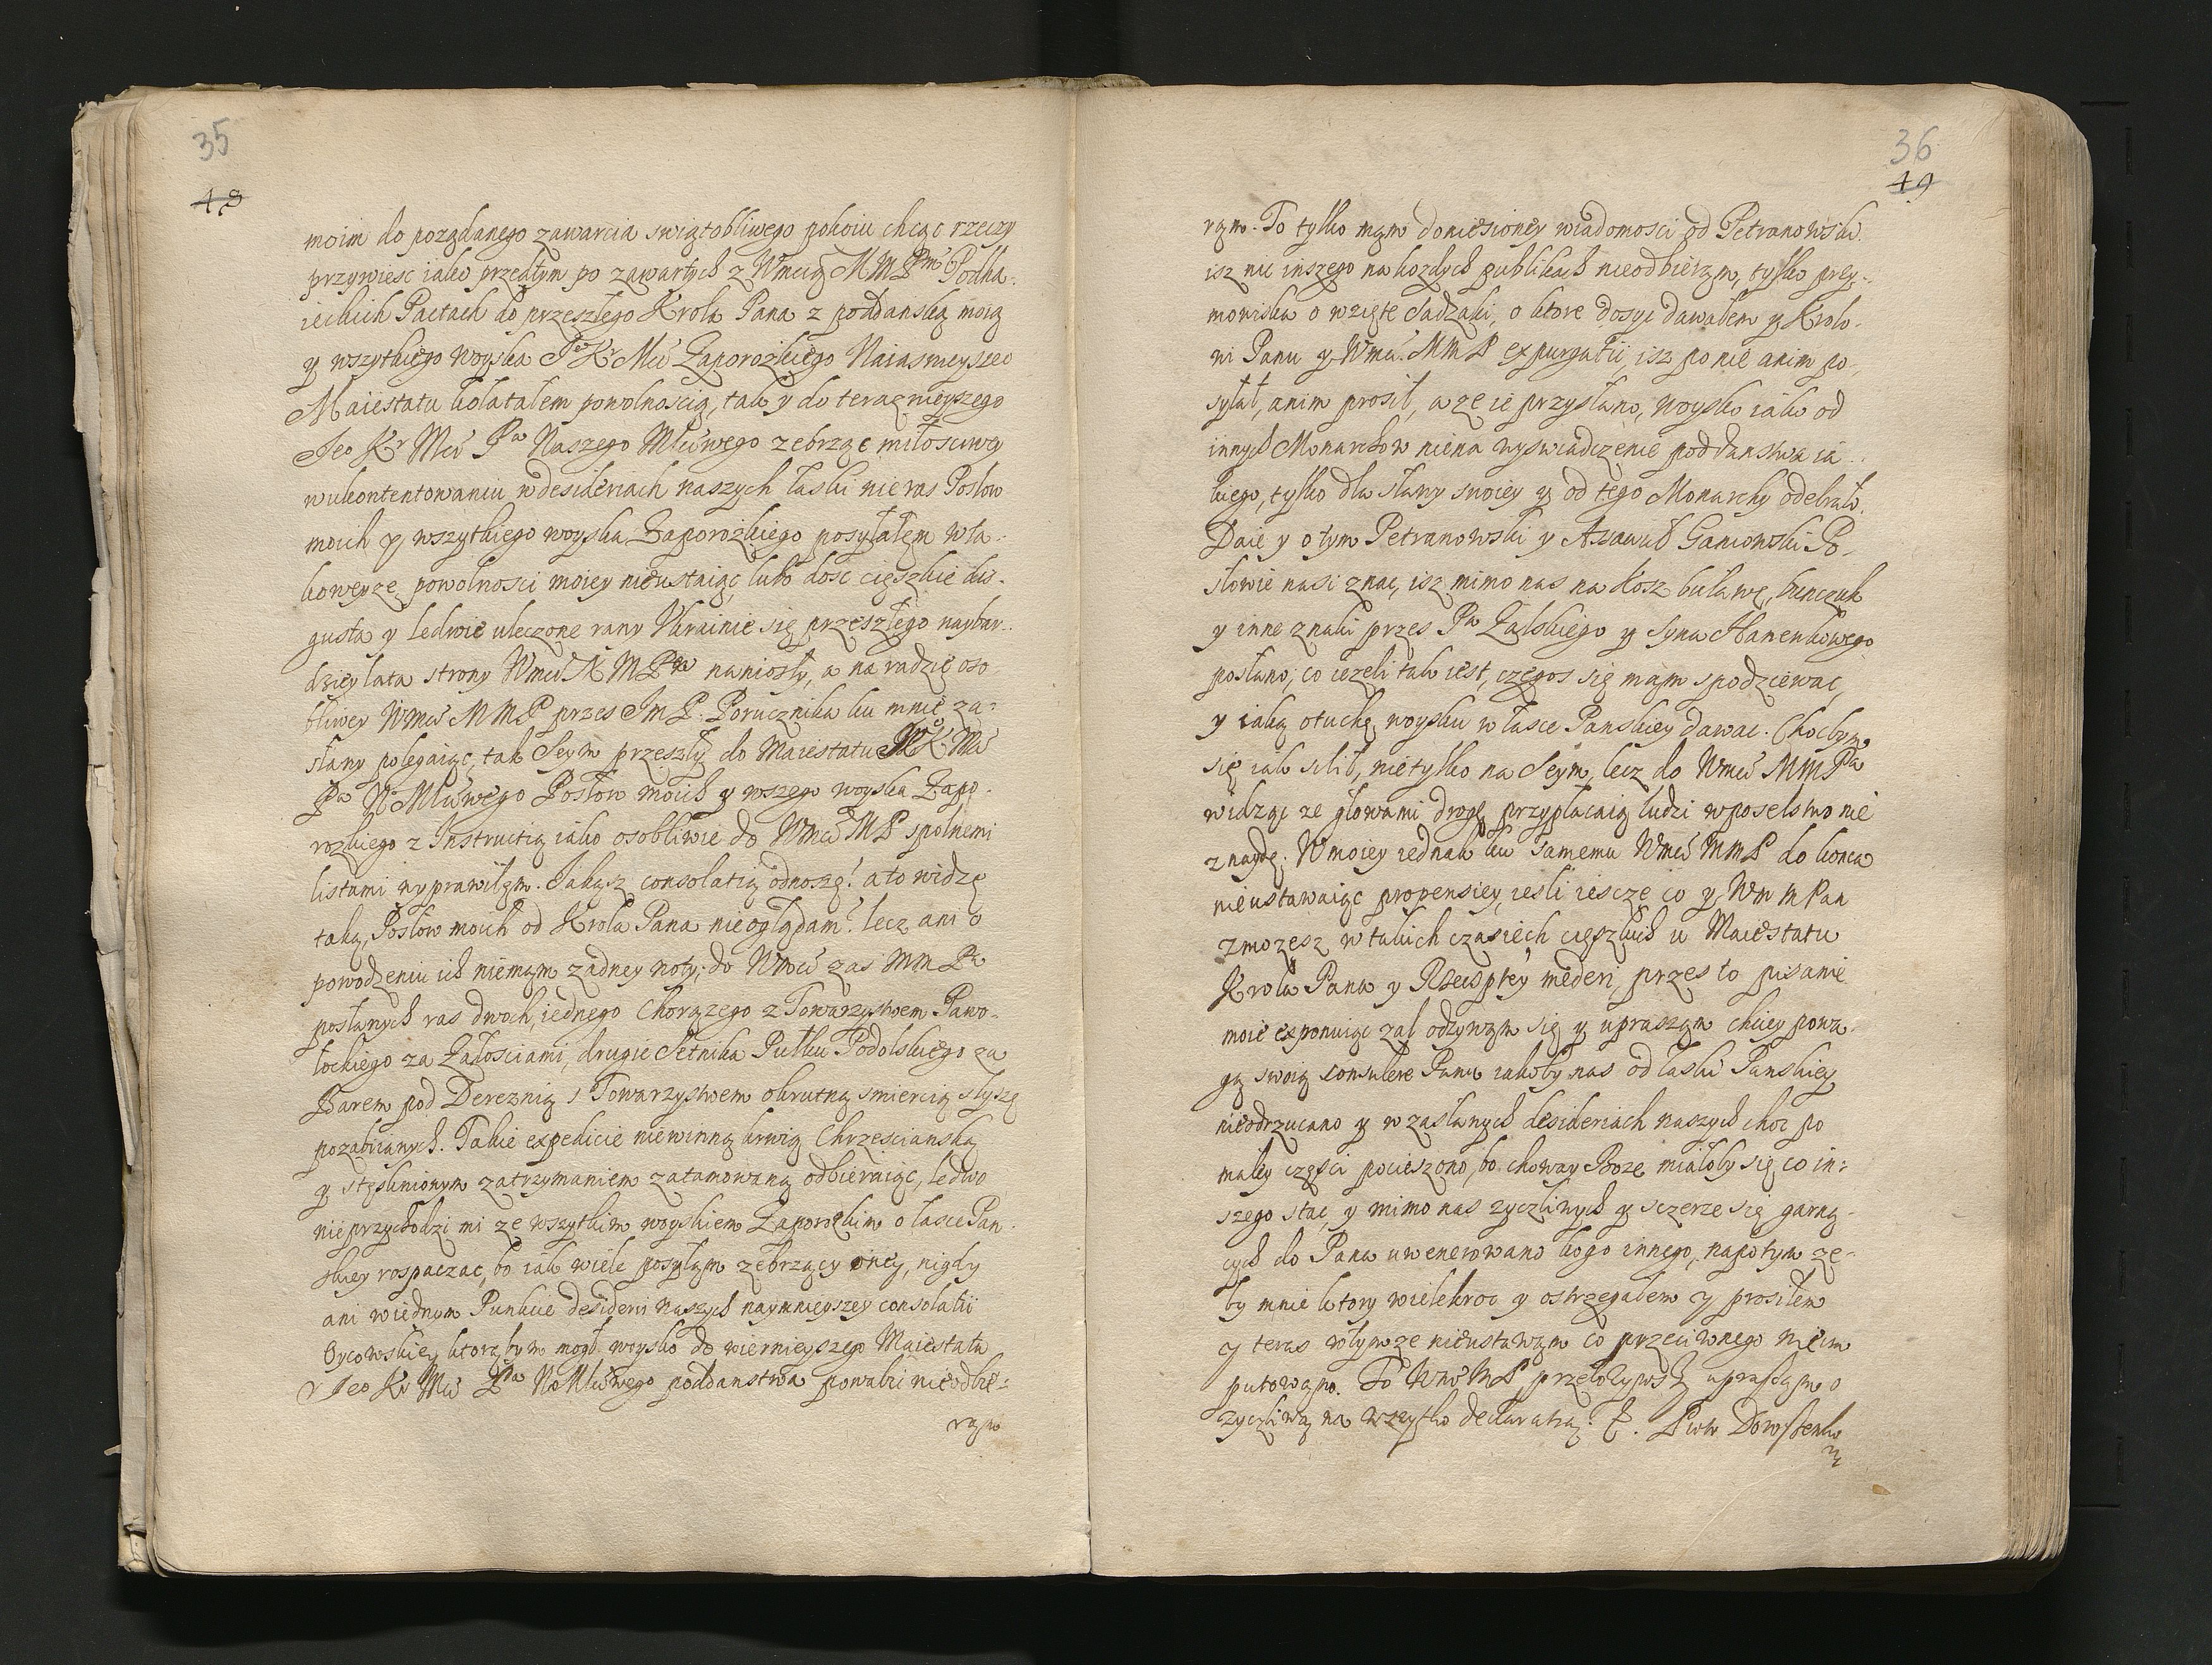 35
48
moim do pożądanego zawarcia swiątobliwego pokoiu chcąc rzeczy
przywiesc iako przedtym po zawartych z Wmcią MMPm Podha-
ieckich Pactach do przeszłego Krola Pana z poddanską moią
y wszytkiego woyska Je Kr Mci Zaporozkiego Naiasnieyszeo
Maiestatu kołatałem powolnoscią, tak y do teraznieyszego
Jeo Kr Mci Pa Naszego Młciwego zebrząc miłosciwey
w ukontentowaniu w desideriach naszych łaski nie ras Posłow
moich y wszytkiego woyska Zaporozkiego posyłałem w ta-
koweyze powolnosci moiey nieustaiąc, lubo dosc cięszkie dis-
gusta y ledwie uleczone rany Ukrainie się przeszłego naybar-
dziey lata strony Wmci MMPa naniosły, a na radzie oso
bliwey Wmci MMP przes JmP. Porucznika ku mnie za-
słany polegaiąc, tak Seym przeszły do Maiestatu JKMci
Pa N Młciwego Posłow moich y wszego woyska Zapo-
rozkiego z Instructią iako osobliwie do Wmci MP spolnemi
listami wyprawiłem. Jakąsz consolatią odnoszę? a to widzę
taką, Posłow moich od Krola Pana nieoglądam? lecz ani o
powodzeniu ich niemąm zadney noty; do Wmci zas MMPa
posłanych ras dwoch, iednego Chorązego z Towarzystwem Pawo-
łockiego za Załosciami, drugie Setnika Pułku Podolskiego za
Barem pod Dereznią s Towarzystwem okrutną smiercią słyszę
pozabiianych. Takie expedicie niewinną krwią Chrzescianską
y stęsknionym zatrzymaniem zatamowaną odbieraiąc, ledwo
nie przychodzi mi ze wszytkim woyskiem Zaporozkim o łasce Pan-
skiey rospaczac, bo iak wiele posyłąm zebrzący oney, nigdy
ani w iednym Punkcie desiderii naszych naymnieyszey consolatii
Oycowskiey ktorą bym mogł woysko do wiernieyszego Maiestatu
Jeo Kr Mci Pa No Młciwego poddanstwa powabic nieodbie-
rąm
36
49
rąm. To tylko mąm doniesioney wiadomosci od Petranowski.
isz nic inszego na kozdych publikach nieodbierąm, tylko przy-
mowiska o wzięte Sadzaki, o ktore dosyc dawałem y Krolo-
wi Panu y Wmci MMP expurgatii, isz po nie anim po-
syłał, anim prosił, a ze ie przysłano, woysko iako od
innych Monarchow niena wyswiadczenie poddanstwa ia-
kiego, tylko dla sławy swoiey y od tego Monarchy odebrało.
Daie y o tym Petranowski y Asawuł Po-
słowie nasi znac, isz mimo nas na Kosz buławę, bunczuk
y inne znaki przes Pa Zalskiego y Syna Hanenkowego
posłano; co iezeli tak iest, czegos się mąm spodziewac,
y iaką otuchę woysku w łasce Panskiey dawac. Chocbym
się iak silił, nietylko na Seym, lecz do Wmci MMPa
widząc ze głowami drogę przypłacaią ludzi w poselstwo nie
znaydę. W moiey iednak ku samemu Wmci MMP do konca
nieustawaiąc propensiey, iesli iescze co y Wm m Pan
zmozesz w takich czasiech cięszkich u Maiestatu
Krola Pana y Rzeczptey mederi, przes to pisanie
moie exponuiąc zal odzywąm się y uprasząm chciey powa-
gą swoią consulere Panu iakoby nas od łaski Panskiey
nieodrzucano y w zasłanych desideriach naszych choc po
małey części pocieszono, bo choway Boze miałoby się co in-
szego stac, y mimo nas zyczliwych y sczerze się garną-
cych do Pana uwenerowano kogo innego, napotym ze-
by mnie ktory wielekroc y ostrzegałem y prosiłem
y teras w tym ze nieustawąm co przeciwnego nie im
putowano. To Wmci MP przełozywsz uprasząm o
zyczliwą na wszytko declaratią. Piotr Doroszenko